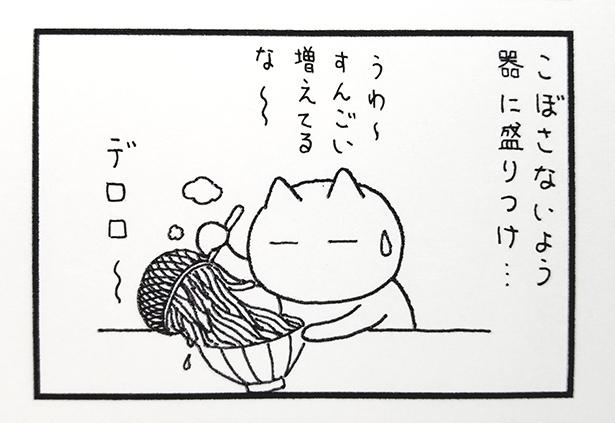 こぼさないよう
器に盛りつけ…
うわ～
すんごい
増えてる
な～～
デロロ～